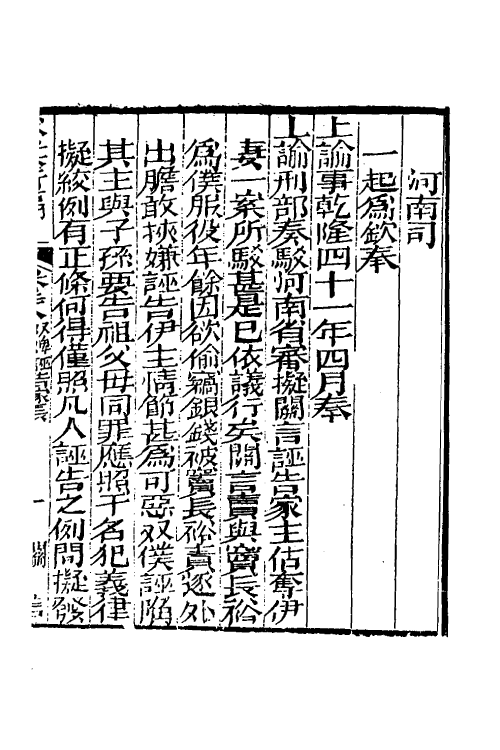 河南司
一起為欽奉
上諭事乾隆四十一年四月奉
上諭刑部奏駁河南省審擬關言誣告家主佔奪伊
妻一案所駁甚是已依議行矣關言賣與竇長裕
為僕服役年餘因欲偷竊銀錢被竇長裕責逐外
出膽敢挾嫌誣告伊主情節甚為可惡奴僕誣陷
其主與子孫要告祖父母同罪應照干名犯義律
擬絞例有正條何得僅照凡人誣告之例問擬發